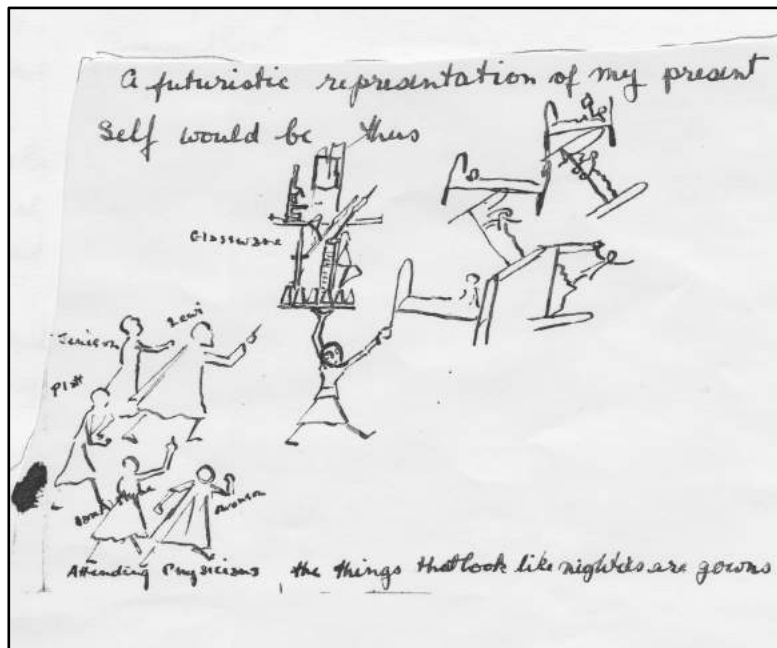 A futuristic representation of my present
Self would be thus
Glassware
Lewi
Jimison
Platt
Swanson
Attending Physicians, the things that look like nighties are gowns